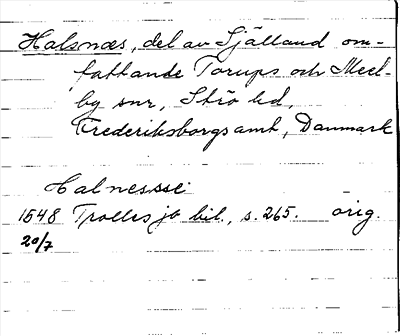 Halsnæs, del av Själland om-
fattande Torups och Meel-
by snr, Strö hd,
Frederiksborgs amt, Danmark
Halnessse
1648 Trolles jb bil., s. 265. orig.
20/7